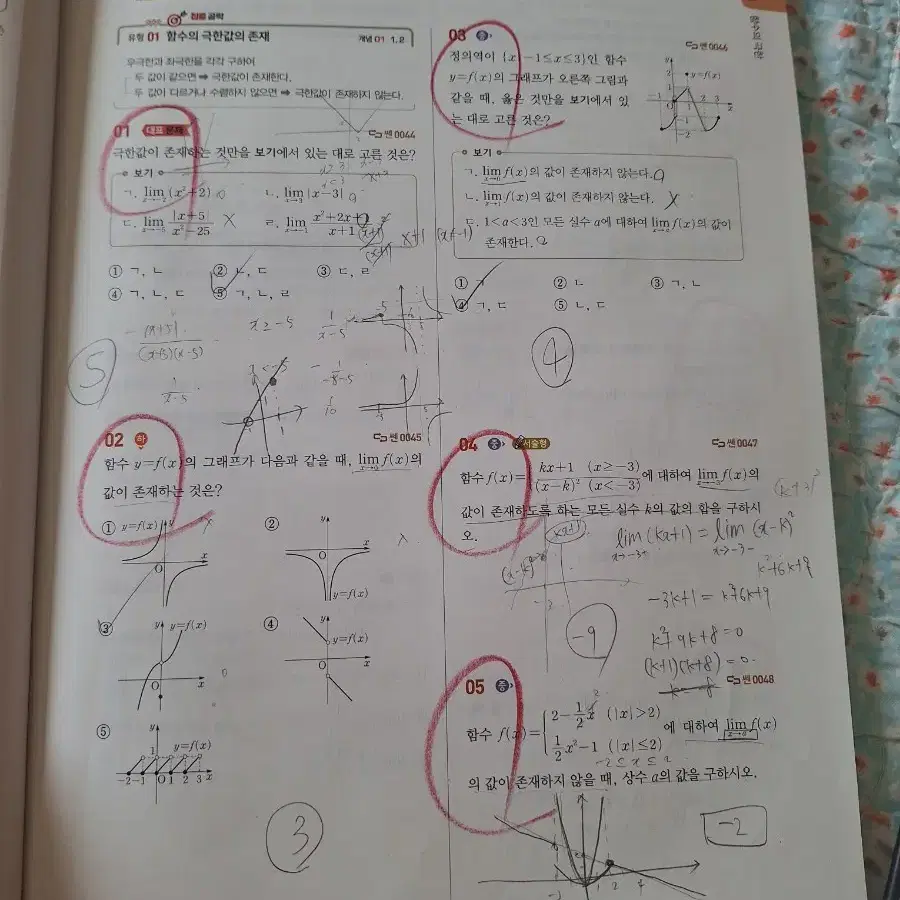 집중 공략
유형 01 함수의 극한값의 존재
개념 01 1, 2
우극한과 좌극한을 각각 구하여
두 값이 같으면 ➡ 극한값이 존재한다.
두 값이 다르거나 수렴하지 않으면 ➡ 극한값이 존재하지 않는다.
01 대표 문제
쎈 0044
극한값이 존재하는 것만을 보기에서 있는 대로 고른 것은?
보기
ㄱ. lim (x²+2)
ㄴ. lim |x-3|
ㄷ. lim |x+5| / x²-25 X
ㄹ. lim x²+2x+1 / x+1
x+1 (x≠-1)
① ㄱ, ㄴ ② ㄴ, ㄷ ③ ㄷ, ㄹ
④ ㄱ, ㄴ, ㄷ ⑤ ㄱ, ㄴ, ㄹ
|x+5|
(x+5)(x-5)
x≥-5
1/x-5
x<-5
1/x-5
-1/-5-5
1/10
5
02 하
쎈 0045
함수 y=f(x)의 그래프가 다음과 같을 때, lim f(x)의
값이 존재하는 것은?
① y=f(x) y x O
② y x O y=f(x)
③ y y=f(x) O x
④ y y=f(x) O x
⑤ y y=f(x) 1 -2 -1 O 1 2 3 x
3
03 중
쎈 0046
정의역이 {x|-1≤x≤3}인 함수
y=f(x)의 그래프가 오른쪽 그림과
같을 때, 옳은 것만을 보기에서 있
는 대로 고른 것은?
y y=f(x) 2 -1 2 3 x -1 -2
보기
ㄱ. lim f(x)의 값이 존재하지 않는다.
ㄴ. lim f(x)의 값이 존재하지 않는다. X
ㄷ. 1<a<3인 모든 실수 a에 대하여 lim f(x)의 값이
존재한다.
① ㄱ ② ㄴ ③ ㄱ, ㄴ
④ ㄱ, ㄷ ⑤ ㄴ, ㄷ
4
04 중 서술형
쎈 0047
함수 f(x)={ kx+1 (x≥-3)
(x-k)² (x<-3) 에 대하여 lim f(x)의
x→-3
값이 존재하도록 하는 모든 실수 k의 값의 합을 구하시
오.
(k+3)²
kx+1
(x-k)²
-3
lim (kx+1) = lim (x-k)²
x→-3+ x→-3-
k²+6k+9
-3k+1 = k²+6k+9
k²+9k+8=0
(k+1)(k+8)=0
-9
05 중
쎈 0048
함수 f(x)={ 2-½x (|x|>2)
½x²-1 (|x|≤2) 에 대하여 lim f(x)
x→a
-2≤x≤2
의 값이 존재하지 않을 때, 상수 a의 값을 구하시오.
-2
1 2 4
함수의 극한